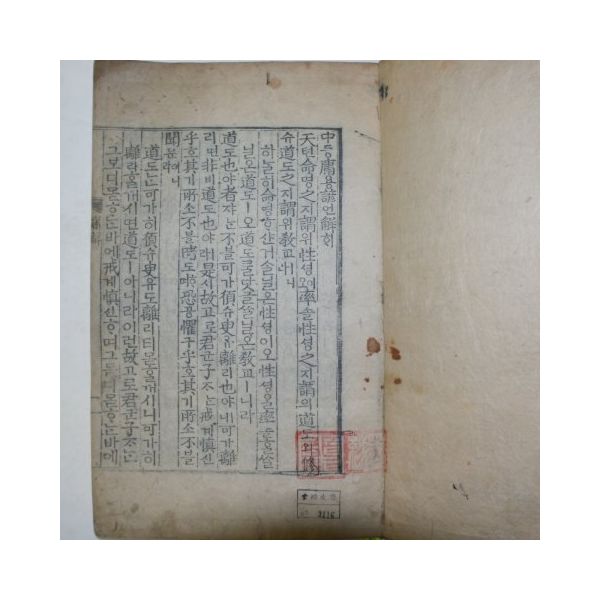 中듕庸용諺언解ᄒᆡ
天텬命명之지謂위性셩이오率솔性셩之지謂위道도ㅣ오修
슈道도之지謂위敎교ㅣ니라
하ᄂᆞᆯ히命명ᄒᆞ샨거ᄉᆞᆯ닐온性셩이오性셩을率솔ᄒᆞᆯᄉᆞᆯ
닐온道도ㅣ오道도ᄅᆞᆯ닷글ᄉᆞᆯ닐온敎교ㅣ니라
道도也야者쟈ᄂᆞᆫ不블可가須슈臾유離리也야ㅣ니可가離
리면非비道도也야ㅣ라是시故고로君군子ᄌᆞᄂᆞᆫ戒계愼신
乎호其기所소不블睹도ᄒᆞ며恐공懼구乎호其기所소不블
聞문이니라
道도ᄂᆞᆫ可가히須슈臾유도離리티몯ᄒᆞᆯ꺼시니可가히
離리ᄒᆞᆯ꺼시면道도ㅣ아니라이런故고로君군子ᄌᆞᄂᆞᆫ
그보디몯ᄒᆞᄂᆞᆫ바에戒계愼신ᄒᆞ며그듣디몯ᄒᆞᄂᆞᆫ바에